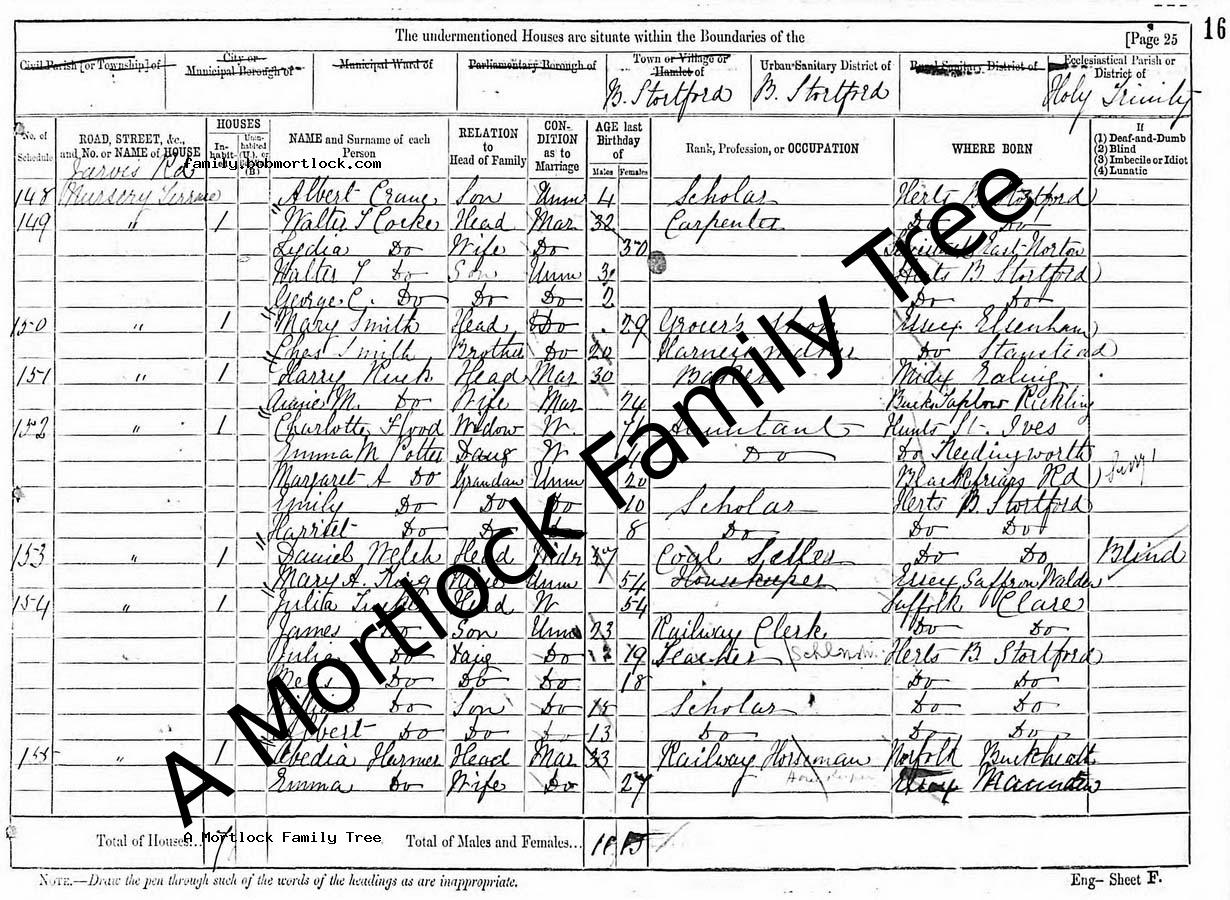 16
The undermentioned Houses are situate within the Boundaries of the [Page 25
Civil Parish [or Township] of City or Municipal Borough of Municipal Ward of Parliamentary Borough of Town or Village or Hamlet of Urban Sanitary District of Rural Sanitary District of Ecclesiastical Parish or District of
B. Stortford B. Stortford Holy Trinity
No. of Schedule ROAD, STREET, &c., and No. or NAME of HOUSE HOUSES Inhabited Uninhabited (U.), or (B) NAME and Surname of each Person RELATION to Head of Family CONDITION as to Marriage AGE last Birthday of Males Females Rank, Profession, or OCCUPATION WHERE BORN If (1) Deaf-and-Dumb (2) Blind (3) Imbecile or Idiot (4) Lunatic
family.bobmortlock.com
Jarvis Rd
148 Nursery Terrace Albert Crane Son Unm 4 Scholar Herts B. Stortford
149 " 1 Walter T Cocker Head Mar 32 Carpenter Do Do
Lydia Do Wife Do 30 East Norton
Walter T Do Son Unm 3 Herts B. Stortford
George C. Do Do Do 2 Do Do
150 " 1 Mary Smith Head Do 29 Grocer's Essex Elsenham
Chas Smith Brother Do 20 Harness maker Do Stanstead
151 " 1 Harry Head Mar 30 Midx Ealing
M. Do Wife Mar 24 Taplow
152 " 1 Charlotte Flood Widow W. Hunts St. Ives
Emma M Potter Daug W Do Do Needingworth
Margaret A Do Grandau Unm 20 Blackfriars Rd Surry
Emily Do Do Do 10 Scholar Herts B. Stortford
Harriet Do Do Do 8 Do Do Do
153 " 1 Daniel Welch Head Widr Coal Seller Do Do Blind
Mary A. King Unm 54 Housekeeper Essex Saffron Walden
154 " 1 Julita Head W 54 Suffolk Clare
James Do Son Unm 23 Railway Clerk Do Do
Julia Do Daug Do 19 Teacher Herts B. Stortford
Do Do Do 18 Do Do
Do Son Do 15 Scholar Do Do
Albert Do Do Do 13 Do Do Do
155 " 1 Harmer Head Mar 33 Railway Horseman Norfolk
Emma Do Wife Do 27 Essex
Total of Houses... 7 Total of Males and Females...
A Mortlock Family Tree
NOTE.—Draw the pen through such of the words of the headings as are inappropriate.
Eng— Sheet F.
A Mortlock Family Tree